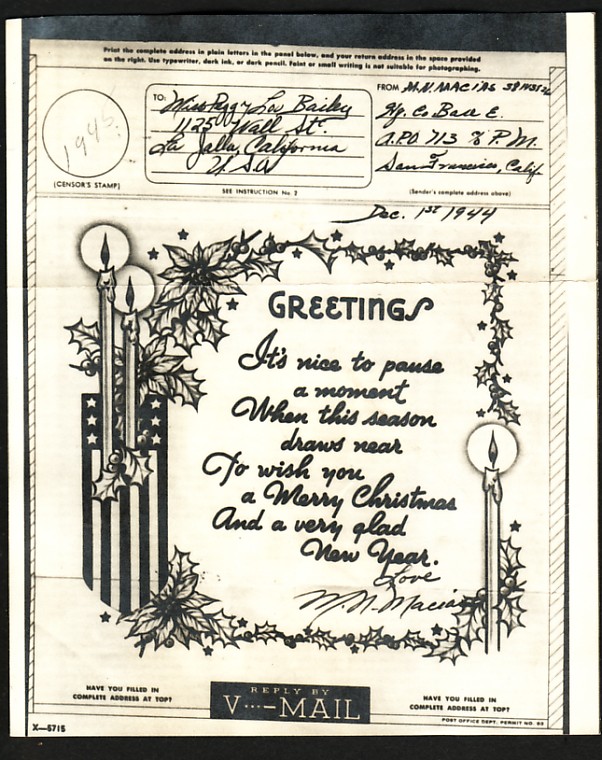 Print the complete address in plain letters in the panel below, and your return address in the space provided
on the right. Use typewriter, dark ink, or dark pencil. Faint or small writing is not suitable for photographing.
TO:
Miss Peggy Lou Bailey
1125 Wall St.
La Jolla, California
U.S.A
FROM M.N. MACIAS
Hq. Co Base E.
A.P.O 713 % P.M.
San Francisco, Calif
1945
(CENSOR'S STAMP)
SEE INSTRUCTION No. 2
(Sender's complete address above)
Dec. 1st 1944
GREETINGS
It's nice to pause
a moment
When this season
draws near
To wish you
a Merry Christmas
And a very glad
New Year.
Love
M. N. Macias
HAVE YOU FILLED IN
COMPLETE ADDRESS AT TOP?
REPLY BY
V···—MAIL
HAVE YOU FILLED IN
COMPLETE ADDRESS AT TOP?
X—5715
POST OFFICE DEPT. PERMIT NO. 93